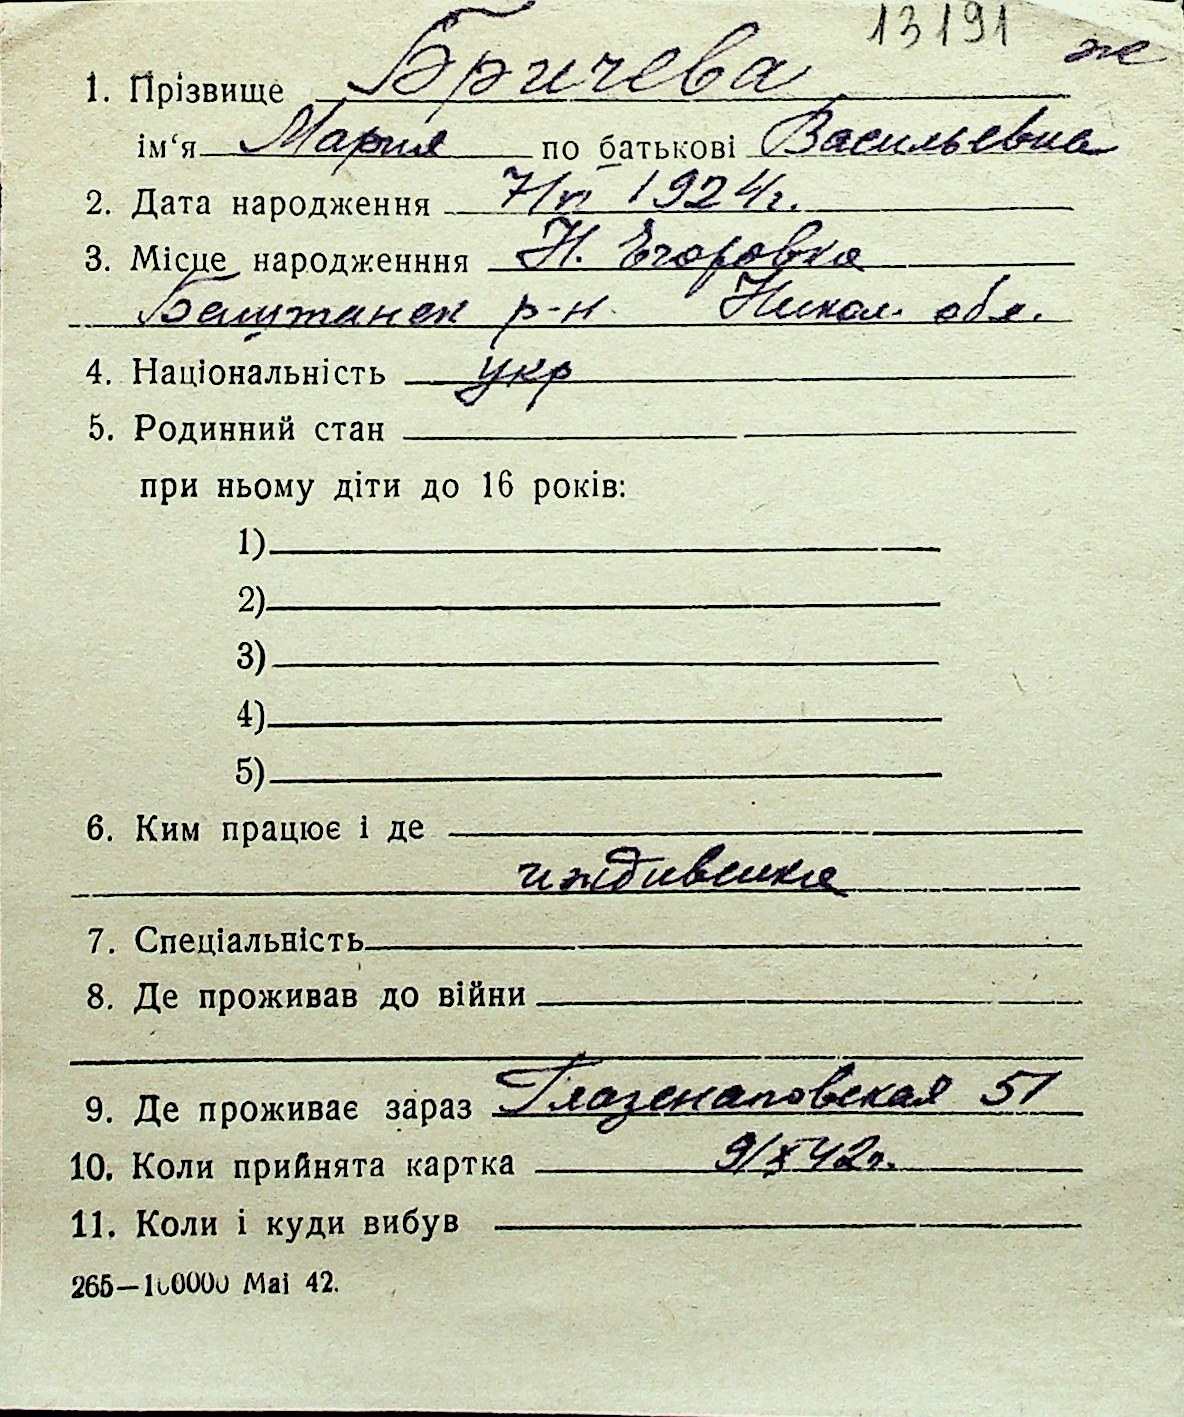 13191 ж
1. Прізвище Бричева
ім‘я Мария по батькові Васильевна
2. Дата народження 7/п 1924г.
3. Місце народженння Н. Егоровка
Баштанск р-н. Никол. обл.
4. Національність укр
5. Родинний стан
при ньому діти до 16 років:
1)
2)
3)
4)
5)
6. Ким працює і де
иждивенка
7. Спеціальність
8. Де проживав до війни
9. Де проживає зараз Глазенаповская 51
10. Коли прийнята картка 9/X 42г.
11. Коли і куди вибув
265—100000 Mai 42.